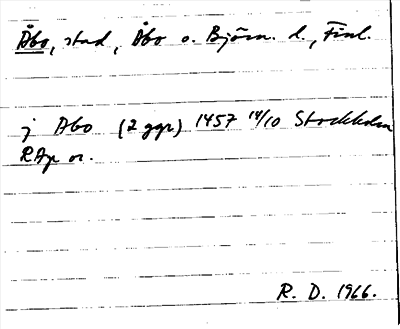 Åbo, stad, Åbo o. Björn. l., Finl.
j Abo (2 ggr) 1457 14/10 Stockholm
RAp or.
R. D. 1966.